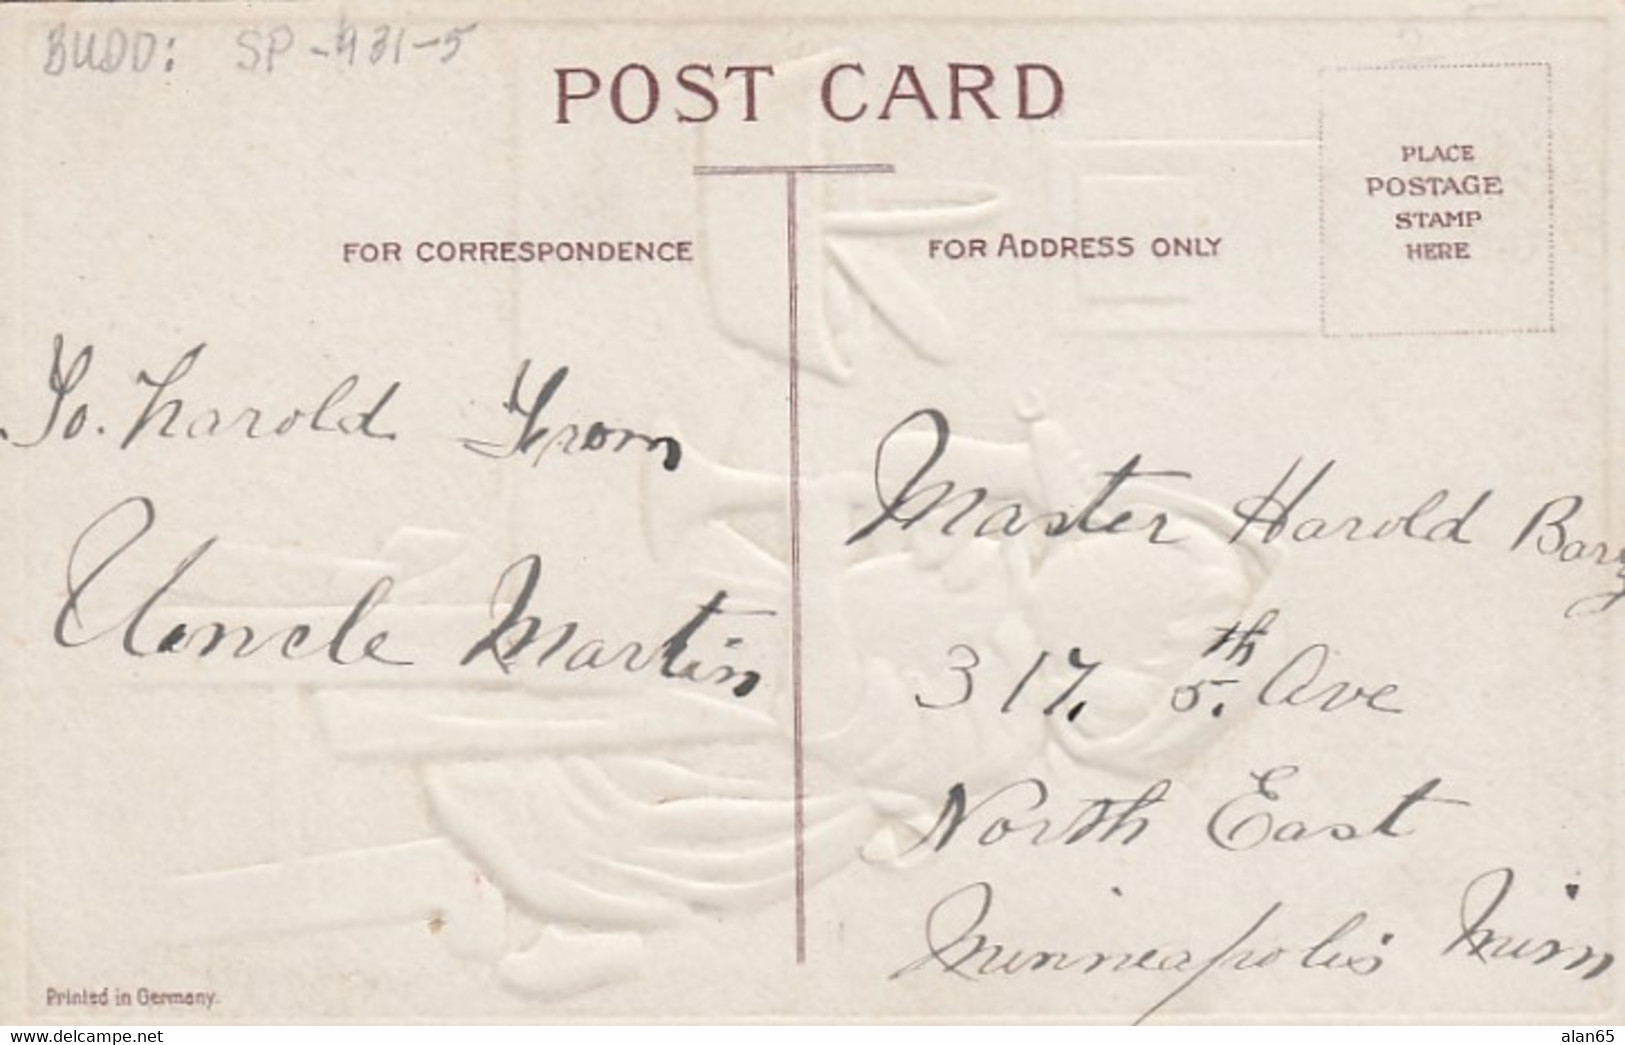 BUDD: SP-931-5
POST CARD
PLACE
POSTAGE
STAMP
HERE
FOR CORRESPONDENCE
FOR ADDRESS ONLY
To. Harold From
Uncle Martin
Master Harold
317. 5.th Ave
North East
Minneapolis Minn
Printed in Germany.
alan65